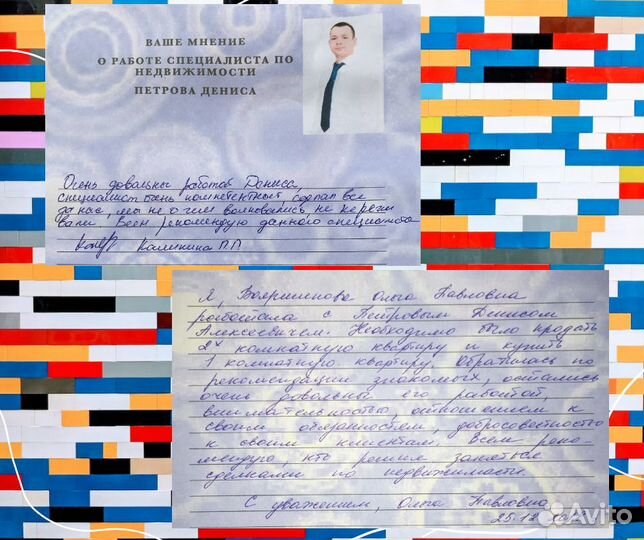 ВАШЕ МНЕНИЕ
О РАБОТЕ СПЕЦИАЛИСТА ПО
НЕДВИЖИМОСТИ
ПЕТРОВА ДЕНИСА
Очень довольны работой Дениса,
специалист очень компетентный, сделал все
за нас, мы не о чем волновались не
Всем рекомендую данного специалиста
Калинина П.П
Я, Ольга Павловна
работала с Петровым Денисом
Алексеевичем. Необходимо было продать
2х комнатную квартиру и купить
1 комнатную квартиру. Обратилась по
рекомендации знакомых, остались
очень довольны его работой,
внимательностью, отношением к
своим обязанностям, добросовестностью
к своим клиентам. Всем реко-
мендую, кто решил заняться
сделками по недвижимости.
С уважением, Ольга Павловна
25.12
Avito